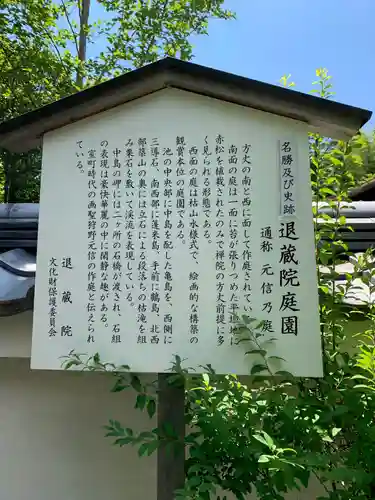 名勝及び史跡
退蔵院庭園
通称 元信の庭
方丈の南と西に面して作庭されている。
南面の庭は一面に苔が張りつめた平庭に
赤松を植栽されたのみで禅院の方丈前庭に多
く見られる形態である。
西面の庭は枯山水様式で、絵画的な構築の
観賞本位の庭園である。
池の中央部に中島を配した亀島を、西側に
三尊石、南西部に蓬莱島、手前に鶴島、北西
部築山の奥には立石による段落ちの枯滝を組
み栗石を敷いて渓流を表現している。
中島の岬には二ヶ所の石橋が渡され、石組
の表現は豪快華麗の中に閑静な趣がある。
室町時代の画聖狩野元信の作庭と伝えられ
ている。
退蔵院
文化財保護委員会